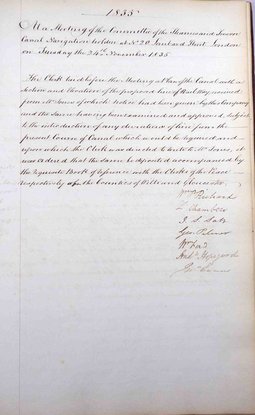 1835
At a Meeting of the Committee of the Thames and Severn
Canal Navigation holden at No 20 Lombard Street London
on Tuesday the 24th November 1835
The Clerk laid before the Meeting a Plan of the Canal with a
Section and Elevation of the proposed line of Rail Way, received
from Mr Jones of which Notice had been given by the Company
and the same having been examined and approved, subject
to the introduction of any deviations of line from the
present Course of Canal which would be required and
upon which the Clerk was directed to write to Mr Jones, it
was ordered that the same be deposited accompanied by
the requisite Book of reference with the Clerks of the Peace
respectively of the Counties of Wilts and Gloucester.
Chambers